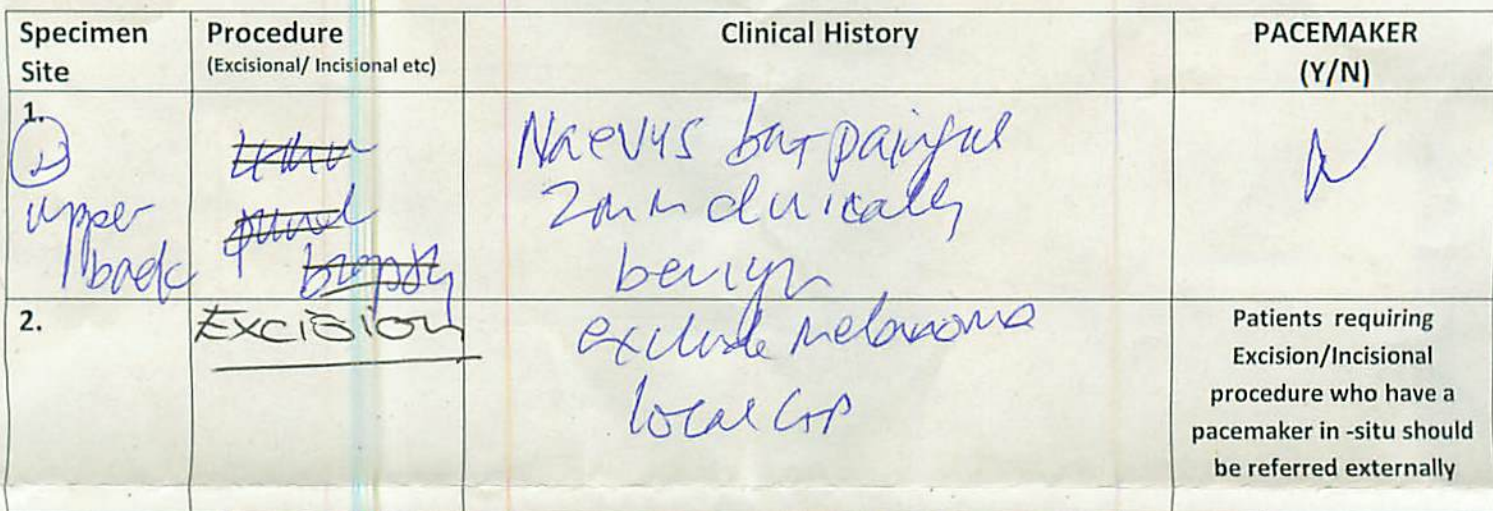 Specimen Site
Procedure
(Excisional/ Incisional etc)
Clinical History
PACEMAKER
(Y/N)
1.
upper
back
punch
biopsy
Naevus but painful
2mm clinically
benign
N
2.
Excision
exclude melanoma
local GP
Patients requiring
Excision/Incisional
procedure who have a
pacemaker in -situ should
be referred externally